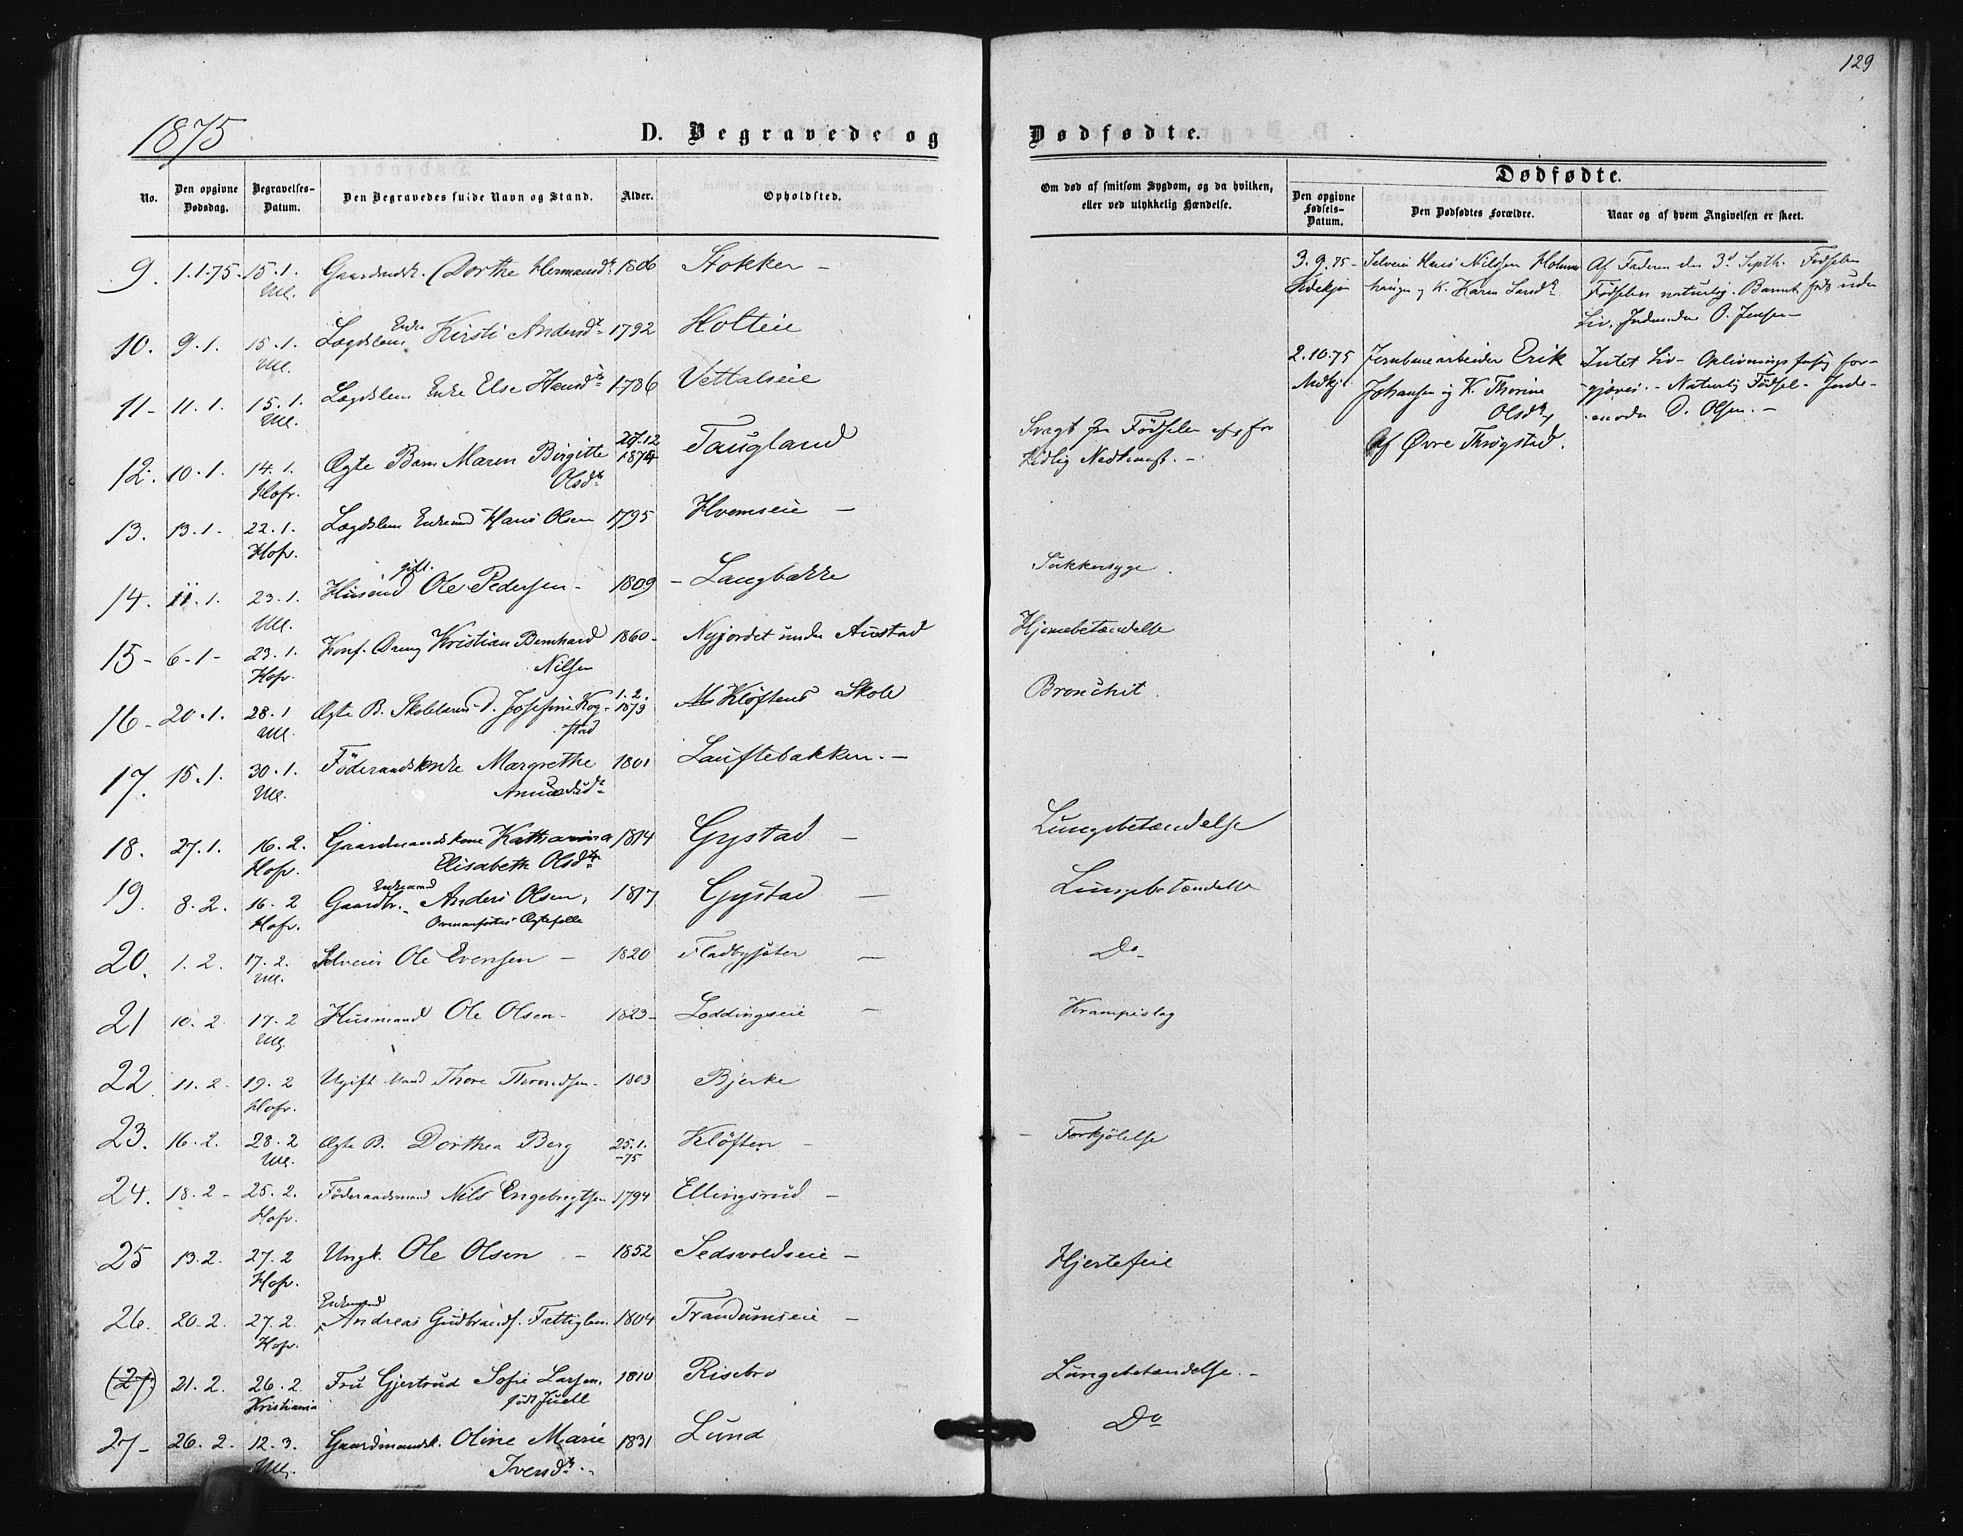 129
1875
D. Begravede og Dødfødte.
No. Den opgivne Dødsdag. Begravelses-Datum. Den Begravedes fulde Navn og Stand. Alder. Opholdsted. Om død af smitsom Sygdom, og da hvilken, eller ved ulykkelig Hændelse.
Dødfødte.
Den opgivne Fødsels-Datum. Den Dødfødtes Forældre. Naar og af hvem Angivelsen er skeet.
9. 1.1.75 - 15.1. Ull. Gaardmdsk. Dorthe Hermansdt. 1806 Stokker -
10. 9.1. 15.1. Ull. Lægdslem Enke Kirsti Andersdt. 1792 Holteie
11 - 11.1. 15.1. Ull. Lægdslem Enke Else Hansdt. 1786 Vettalseie
12. 10.1. 14.1. Hofr. Ægte Barn Maren Birgitte Olsdt. 27.12 1874 Taugland Svagt fra Fødselen af, for tidlig Nedkomst. -
13. 13.1. 22.1. Hofr. Lægdslem Enkemd Hans Olsen 1795 Hvamseie -
14. 11.1. 23.1. Ull. Husmd gift. Ole Pedersen - 1809 - Langbakke Sukkersyge.
15 - 6.1 - 23.1. Hofr. Konf. Dreng Kristian Bernhard Nilsen 1860 - Nyjordet under Aurstad Hjernebetændelse
16 - 20.1. 28.1 Ull. Ægte B. Skolelærer D. Josefine Kogstad 1.2. 1873 Kløftens Skole Bronchit.
17. 15.1. 30.1. Ull. Föderaadsenke Margrethe Amundsdt. 1801 Lauftebakken. -
18. 27.1. 16.2. Hofr. Gaardmandskone Katharina Elisabeth Olsdtr. 1814 Gystad - Lungebetændelse
19. 8.2. 16.2 Hofr. Gaardbr. Enkemand Anders Olsen, Ovenanførtes Ægtefælle 1817 Gystad - Lungebetændelse
20. 1.2. 17.2. Ull. Selveier Ole Evensen - 1820 Fladbysæter - Do
21 10.2. 17.2 Ull. Husmand Ole Olsen - 1823 - Loddingseie - Krampeslag
22 11.2. 19.2 Hofr. Ugift Mand Thore Throndsen. 1803 Bjerke
23. 16.2. 28.2 Ull. Ægte B. Dorthea Berg 25.1. -75 Kløften - Forkjølelse
24. 18.2 - 25.2. Hofr. Föderaadsmand Nils Engebrigtsen 1794 Ellingsrud -
25 13.2. 27.2 Hofr. Ungk. Ole Olsen - 1852 Sedsvoldseie - Hjertefeil
26. 20.2. 27.2. Hofr. Enkemand Andreas Gudbrands. Fattiglem. 1804 Trandumseie -
(27.) 21.2. 26.2. Kristiania Fru Gjertrud Sofie Larsen, født Juell 1810 Risebro Lungebetændelse. -
27 - 26.2. 12.3. Ull. Gaardmandsk. Oline Marie Iversdt. 1831 Lund Do
3.9.75 - Selveier Hans Nilssen Holmen- haugen og K. Karen Larsdt. Af Faderen den 3d Septb. Fødselen naturlig. Barnet født uden Liv. Jordmoder O. Jensen -
2.10.75 Jernbanearbeider Erik Johansen og K. Thorine Olsdtr. af Øvre Thrøgstad. Intet Liv - Oplivningsforsøg forgjæves. - Naturlig Fødsel - Jordemoder D. Olsen. -